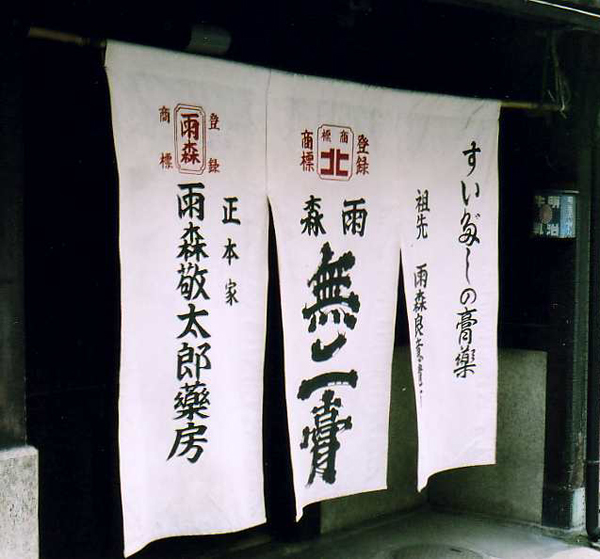 すいだしの膏藥
祖先 雨森良
登録
商標
商標
北
雨森
無二膏
登録
商標
雨森
正本家
雨森敬太郎藥房